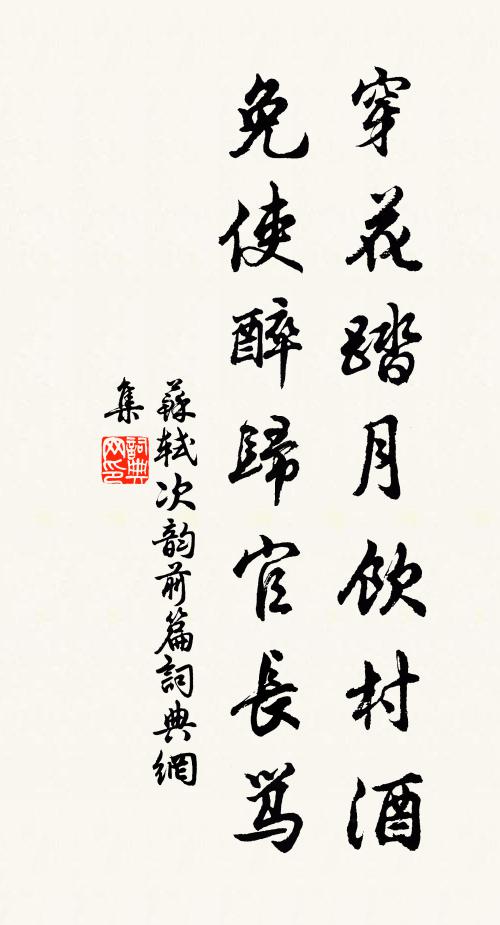 穿花踏月飲村酒
免使醉歸官長罵
蘇軾次韵前篇詞典網
集
詞典網印